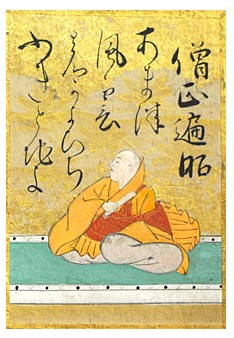 僧正遍昭
あま津
風雲
のかよひち
ふきとちよ